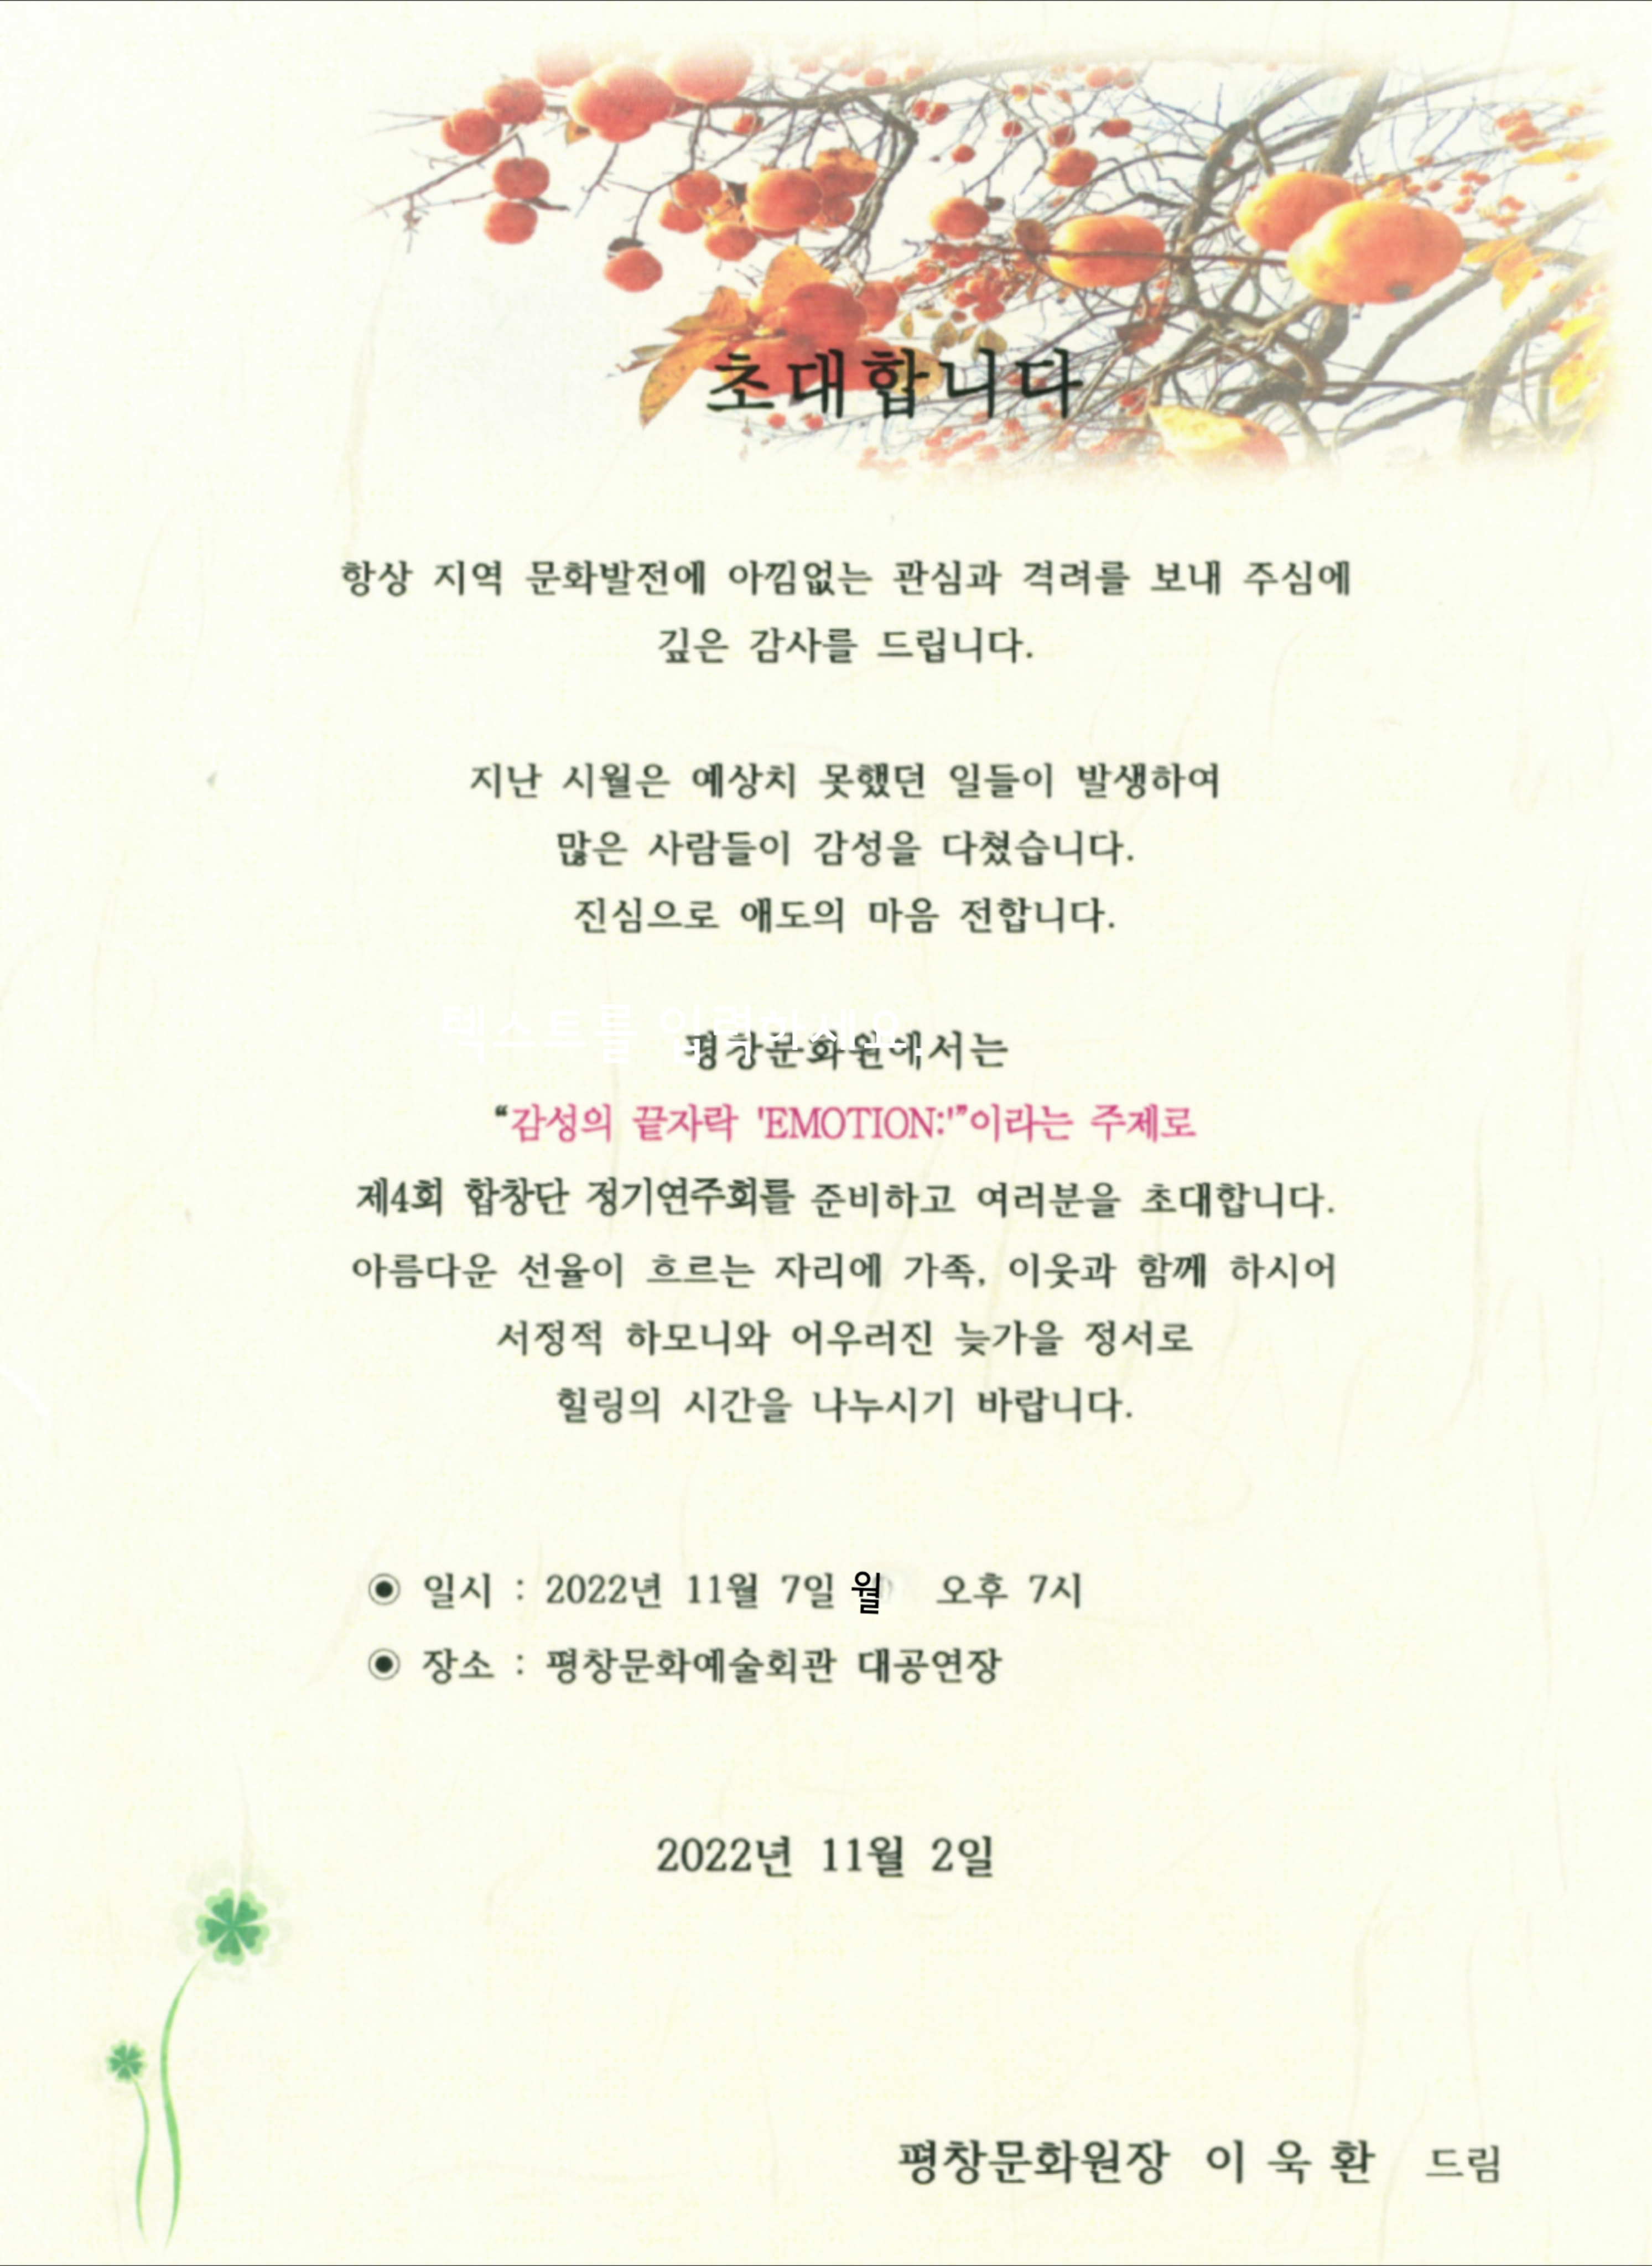 초대합니다
항상 지역 문화발전에 아낌없는 관심과 격려를 보내 주심에
깊은 감사를 드립니다.
지난 시월은 예상치 못했던 일들이 발생하여
많은 사람들이 감성을 다쳤습니다.
진심으로 애도의 마음 전합니다.
텍스트를 입력하세요.
평창문화원에서는
“감성의 끝자락 'EMOTION:'”이라는 주제로
제4회 합창단 정기연주회를 준비하고 여러분을 초대합니다.
아름다운 선율이 흐르는 자리에 가족, 이웃과 함께 하시어
서정적 하모니와 어우러진 늦가을 정서로
힐링의 시간을 나누시기 바랍니다.
◉ 일시 : 2022년 11월 7일 월 오후 7시
◉ 장소 : 평창문화예술회관 대공연장
2022년 11월 2일
평창문화원장 이 욱 환 드림